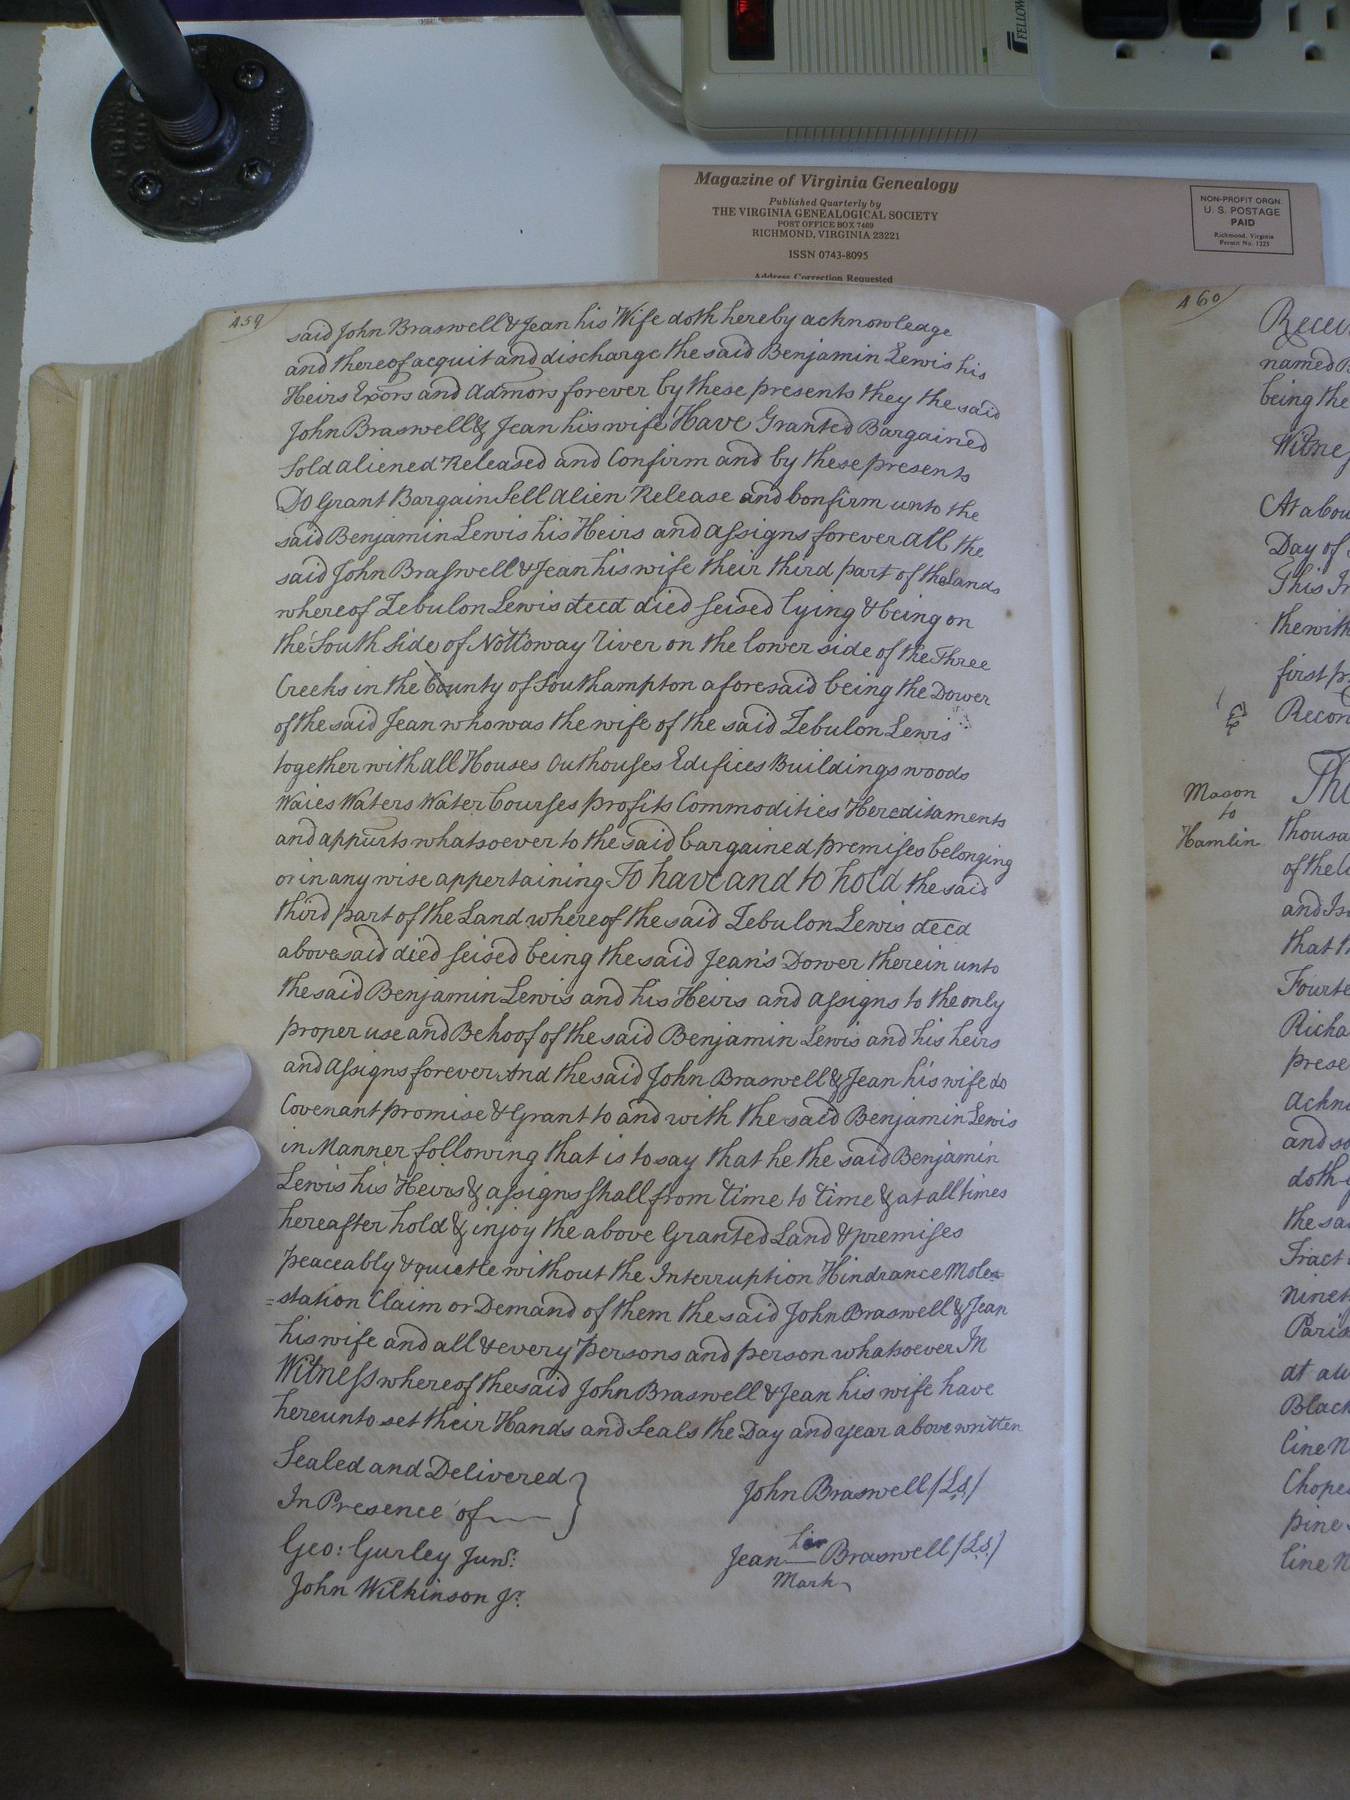 FELLOW
Magazine of Virginia Genealogy
Published Quarterly by
THE VIRGINIA GENEALOGICAL SOCIETY
POST OFFICE BOX 7469
RICHMOND, VIRGINIA 23221
ISSN 0743-8095
Address Correction Requested
NON-PROFIT ORGN.
U. S. POSTAGE
PAID
Richmond, Virginia
Permit No. 1225
459
said John Braswell & Jean his Wife doth hereby acknowledge
and thereof acquit and discharge the said Benjamin Lewis his
Heirs Exors and Admors forever by these presents they the said
John Braswell & Jean his wife Have Granted Bargained
Sold aliened Released and Confirm and by these presents
Do Grant Bargain Sell alien Release and Confirm unto the
said Benjamin Lewis his Heirs and assigns forever all the
said John Braswell & Jean his wife their third part of the Lands
whereof Zebulon Lewis decd died seised lying & being on
the South Side of Nottoway River on the lower side of the Three
Creeks in the County of Southampton aforesaid being the Dower
of the said Jean who was the wife of the said Zebulon Lewis
together with all Houses Outhouses Edifices Buildings woods
Waies Waters Water Courses profits Commodities Hereditaments
and appurts whatsoever to the said bargained premises belonging
or in any wise appertaining To have and to hold the said
third part of the Land whereof the said Zebulon Lewis decd
abovesaid died seised being the said Jean's Dower therein unto
the said Benjamin Lewis and his Heirs and assigns to the only
proper use and Behoof of the said Benjamin Lewis and his heirs
and assigns forever And the said John Braswell & Jean his wife do
Covenant promise & Grant to and with the said Benjamin Lewis
in Manner following that is to say that he the said Benjamin
Lewis his Heirs & assigns shall from time to time & at all times
hereafter hold & injoy the above Granted Land & premises
peaceably & quietle without the Interruption Hindrance Mole=
=station Claim or Demand of them the said John Braswell & Jean
his wife and all & every Persons and person whatsoever In
Witness whereof the said John Braswell & Jean his wife have
hereunto set their Hands and Seals the Day and year above written
Sealed and Delivered
In Presence of
John Braswell (LS)
Geo: Gurley Junr:
her
Jean Braswell (LS)
Mark
John Wilkinson Jr.
460
named
being the
Witnes
At a
Day of
This
first
Recor
Mason
to
Hamlin
thousa
of the
and
that
Fourte
Richa
prese
ackn
and
doth
the sa
Tract
ninet
Paris
at
Black
line
Chope
pine
line